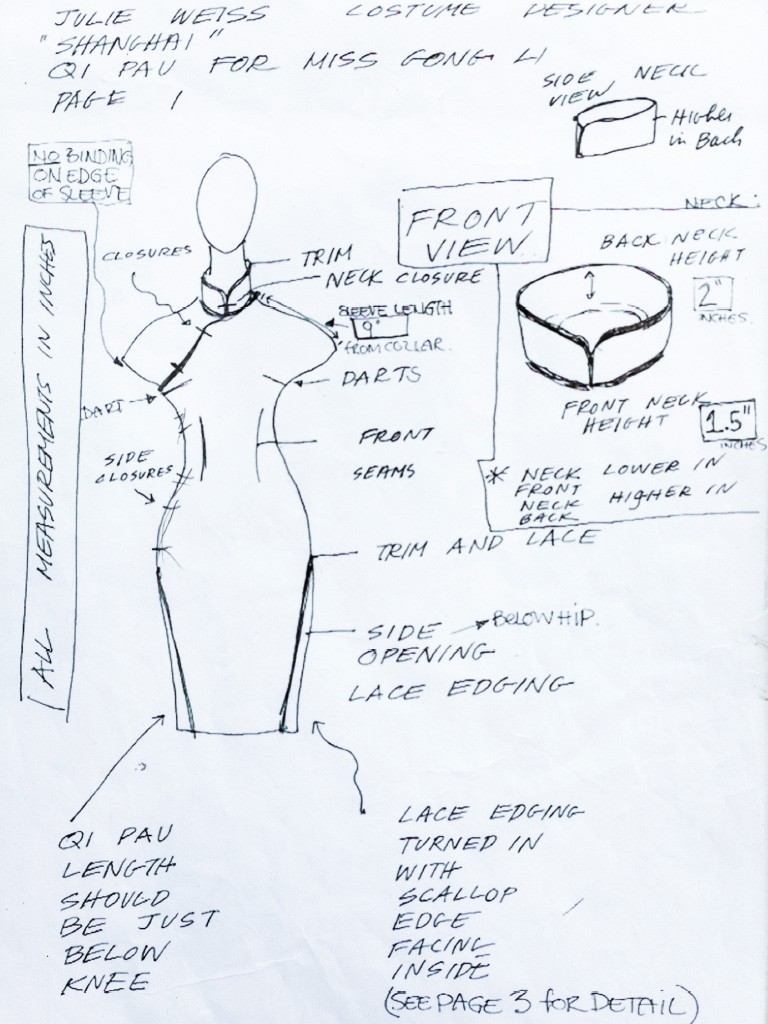 JULIE WEISS COSTUME DESIGNER
"SHANGHAI"
QI PAU FOR MISS GONG LI
PAGE 1
SIDE NECK
VIEW
Higher
in Back
NO BINDING
ON EDGE
OF SLEEVE
FRONT
VIEW
NECK:
CLOSURES
TRIM
NECK CLOSURE
BACK NECK
HEIGHT
2"
INCHES.
SLEEVE LENGTH
9"
from COLLAR.
ALL MEASUREMENTS IN INCHES
DARTS
DART
FRONT NECK
HEIGHT
1.5"
INCHES
FRONT
SEAMS
SIDE
CLOSURES
* NECK LOWER IN
FRONT
NECK HIgHER IN
BACK
TRIM AND LACE
SIDE BELOW HIP.
OPENING
LACE EDGING
QI PAU
LENGTH
SHOULD
BE JUST
BELOW
KNEE
LACE EDGING
TURNED IN
WITH
SCALLOP
EDGE
FACING
INSIDE
(SEE PAGE 3 foR DETAIL)